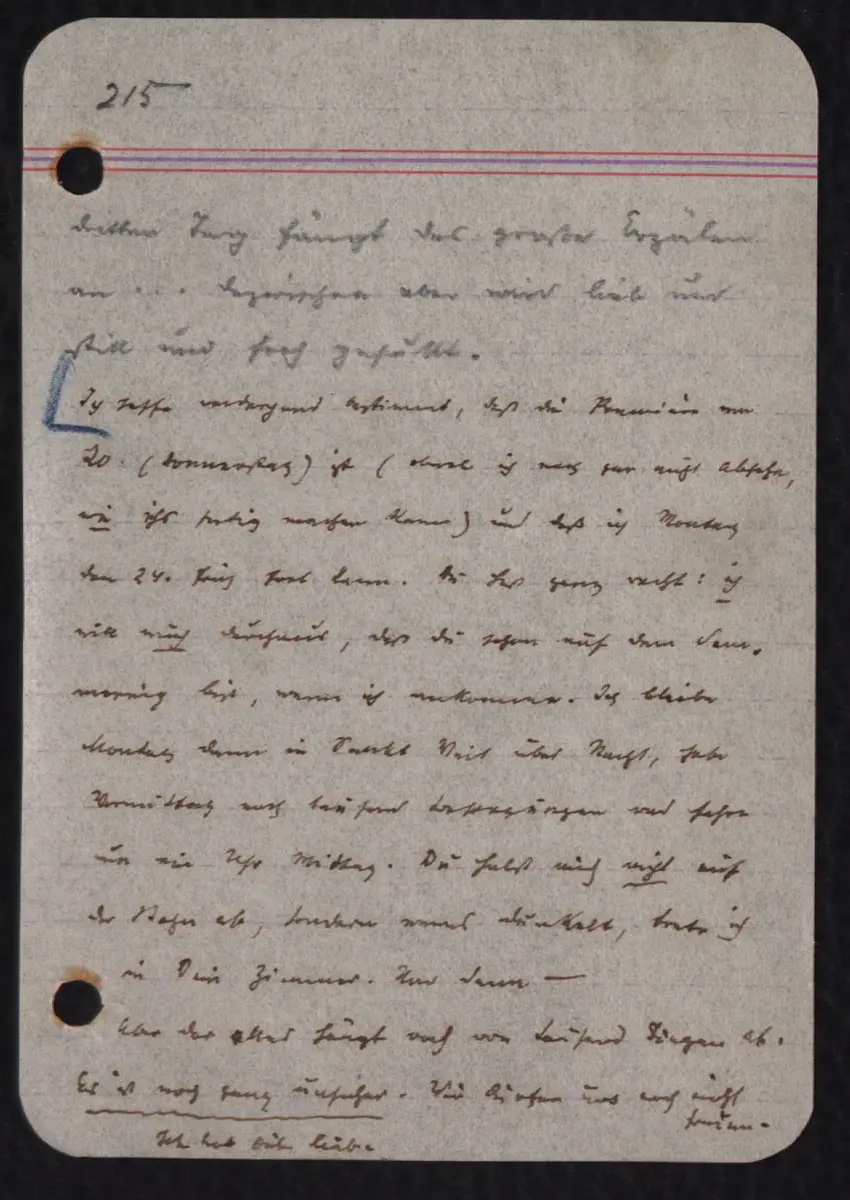 215
dritten Tag fängt das große Erzälen
an . . . dazwischen aber wird lieb und
still und hoch gefüllt.
Ich hoffe vordergrund bestimmt, daß die Premiere am
20. (Donnerstag) ist (obwol ich noch gar nicht absehe,
wie ichs fertig machen kann) und daß ich Montag
den 24. früh fort kann. Du hast ganz recht: ich
will auch durchaus, daß du schon auf dem Sem-
mering bist, wenn ich ankomme. Ich bleibe
Montag dann in Sankt Veit über Nacht, habe
Vormittag noch tausend Besorgungen und fahre
um ein Uhr Mittag. Du holst mich nicht auf
der Bahn ab, sondern wenns dunkelt, trete ich
in Dein Zimmer. Und dann —
Aber das alles hängt noch von tausend Dingen ab.
Es ist noch ganz unsicher. Wir dürfen uns noch nicht
freuen.
Ich hab dich lieb.